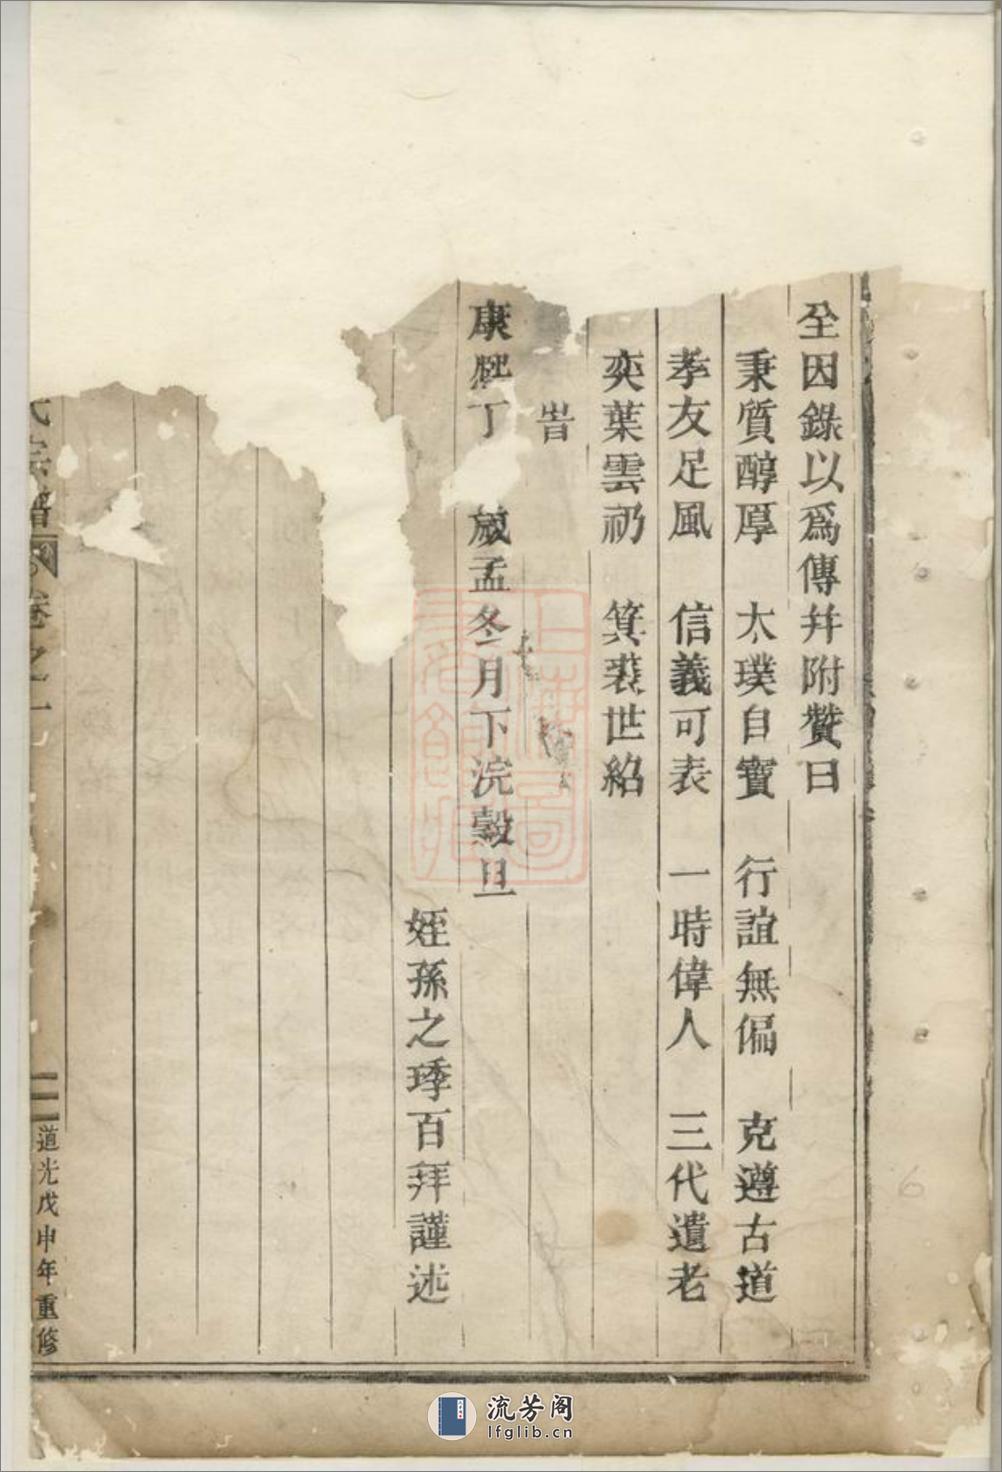 至因錄以爲傳幷附贊曰
秉質醇厚 太璞自寶 行誼無偏 克遵古道
孝友足風 信義可表 一時偉人 三代遺老
奕葉雲礽 箕裘世紹
旹
康熙丁 歲孟冬月下浣穀旦
姪孫之琫百拜謹述
氏宗譜 卷之一
道光戊申年重修
流芳阁
lfglib.cn
6